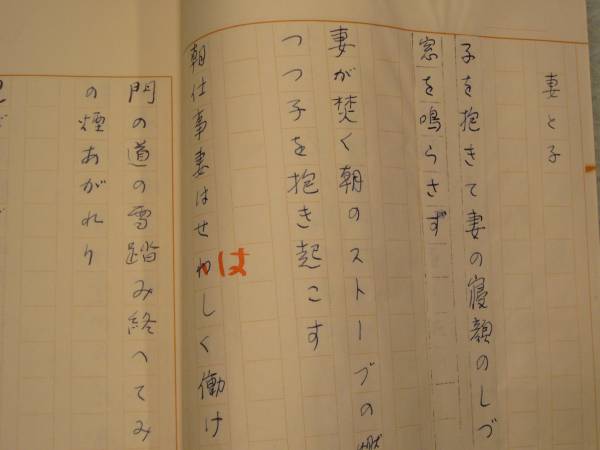 妻と子
子を抱きて妻の寝顔のしづ
窓を鳴らさず
妻が焚く朝のストーブの燃
つつ子を抱き起こす
朝仕事妻はせわしく働け
は
門の道の雪踏み終へてみ
の煙あがれり